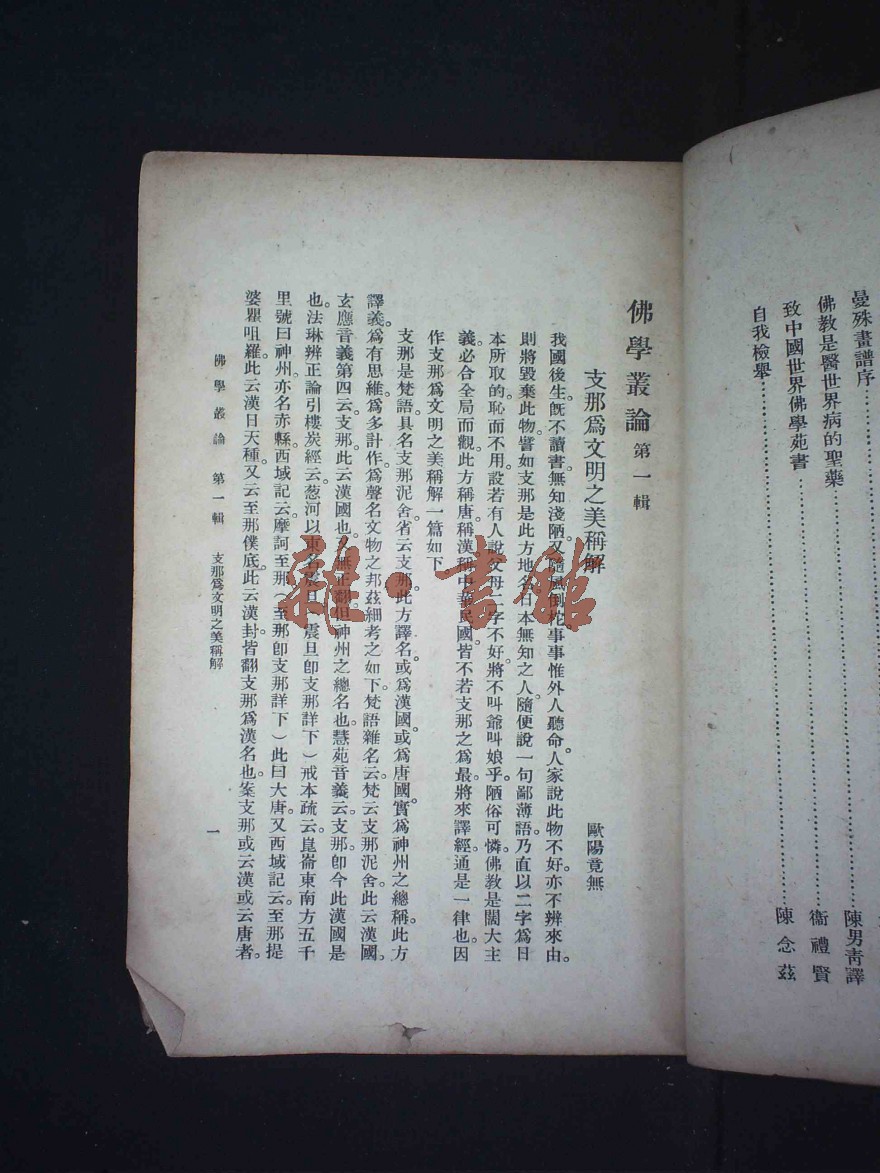 曼殊畫譜序……………………陳男青譯
佛教是醫世界病的聖藥……………………衞禮賢
致中國世界佛學苑書……………………陳念茲
自我檢舉……………………
佛學叢論 第一輯
支那爲文明之美稱解
歐陽竟無
我國後生。旣不讀書。無知淺陋。又隨風倒柁。事事惟外人聽命。人家說此物不好。亦不辨來由。
則將毀棄此物。譬如支那是此方地名。日本無知之人。隨便說一句鄙薄語。乃直以二字爲日
本所取的。恥而不用。設若有人說父母二字不好。將不叫爺叫娘乎。陋俗可憐。佛教是闊大主
義。必合全局而觀。此方稱唐稱漢稱中華民國。皆不若支那之爲最。將來譯經。通是一律也。因
作支那爲文明之美稱解一篇如下。
支那是梵語。具名支那泥舍。省云支那。此方譯名或爲漢國。或爲唐國。實爲神州之總稱。此方
譯義。爲有思維。爲多計作。爲聲名文物之邦。茲細考之如下。梵語雜名云。梵云支那泥舍。此云漢國。
玄應音義第四云。支那。此云漢國也。又無正翻。但神州之總名也。慧苑音義云。支那。卽今此漢國是
也。法琳辨正論引樓炭經云。葱河以東名震旦（震旦卽支那詳下）戒本疏云。崑崙東南方五千
里號曰神州。亦名赤縣。西域記云。摩訶至那（至那卽支那詳下）此曰大唐。又西域記云。至那提
婆瞿呾羅。此云漢日天種。又云至那僕底。此云漢封。皆翻支那爲漢名也。案支那或云漢或云唐者。
佛學叢論 第一輯 支那爲文明之美稱解
一
雜·書館